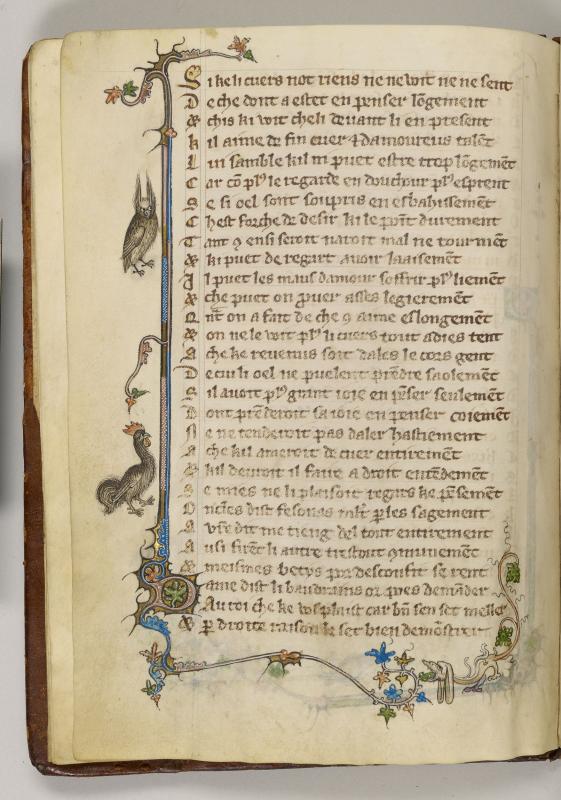 Si ke li cuers not riens ne ne wit ne ne sent
De che dont a estet en penser lõgement
& chis ki wit cheli devant li en present
kil aime de fin cuer & damoureus talẽt
Lui samble kil ni puet estre trop lõgemẽt
Car cõ pl' le regarde en douchour pl' esprent
Se si oel sont soupris en esbahissement
Chest forche de desir ki le point durement
Tant q ensi seroit naroit mal ne tourmẽt
& ki puet de regart avoir laaisemẽt
Il puet les maus damour soffrir pl' liemẽt
& che puet on puer asses legierement
Qnt on a fait de che q aime eslongemẽt
& on ne le voit pl' li cuers tout adies tent
A che ke revenus soit dales le cors gent
De cui li oel ne puelent prẽdre saolemẽt
Sil avoit pl' grant ioie en pẽser seulemẽt
Dont prẽderoit sa ioie en penser coiemẽt
Ne ne tenderoit pas daler hastiement
A che kil ameroit de cuer entirement
& kil devroit il faire a droit entẽdement
Se mies ne li plaisoit regars ke pẽsemẽt
Dncles dist fesonas mlt ples sagement
A vr̃e dit me tieng del tout entirement
Ausi firẽt li autre trestout qmunemẽt
& meismes betys por desconfit se rent
Dame dist li baudrains or poes demãder
A un roi che ke vos plaist car bñ sen set meller
& p droite raison le set bien demõstrer